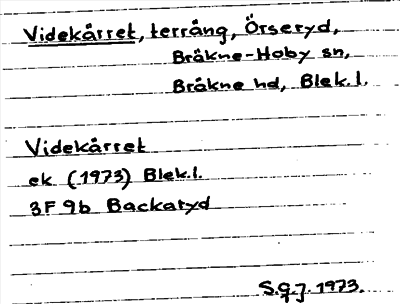 Videkärret, terräng, Örseryd,
Bräkne-Hoby sn,
Bräkne hd, Blek.l.
Videkärret
ek (1973) Blek.l.
3F 9b Backaryd
S.G.J. 1973.